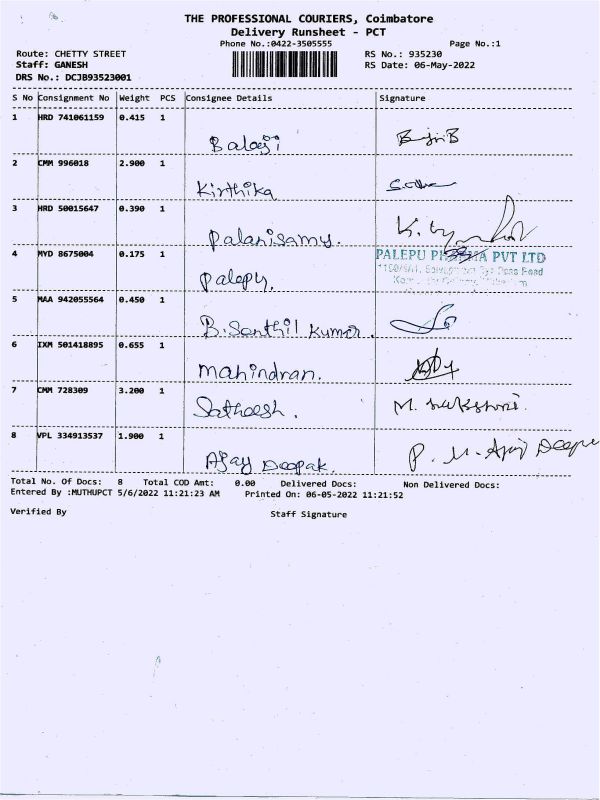 THE PROFESSIONAL COURIERS, Coimbatore
Delivery Runsheet - PCT
Phone No.:0422-3505555
Page No.:1
Route: CHETTY STREET
RS No.: 935230
Staff: GANESH
RS Date: 06-May-2022
DRS No.: DCJB93523001
S No Consignment No Weight PCS Consignee Details Signature
1 HRD 741061159 0.415 1
Balaji
2 CMM 996018 2.900 1
Kirthika
3 HRD 50015647 0.390 1
Palanisamy.
4 MYD 8675004 0.175 1
PALEPU PHARMA PVT LTD
Palepu.
5 MAA 942055564 0.450 1
B. Senthil Kumar.
6 IXM 501418895 0.655 1
Mahindran.
7 CMM 728309 3.200 1
Satheesh.
8 VPL 334913537 1.900 1
Ajay Deepak.
Total No. Of Docs: 8 Total COD Amt: 0.00 Delivered Docs: Non Delivered Docs:
Entered By :MUTHUPCT 5/6/2022 11:21:23 AM Printed On: 06-05-2022 11:21:52
Verified By Staff Signature